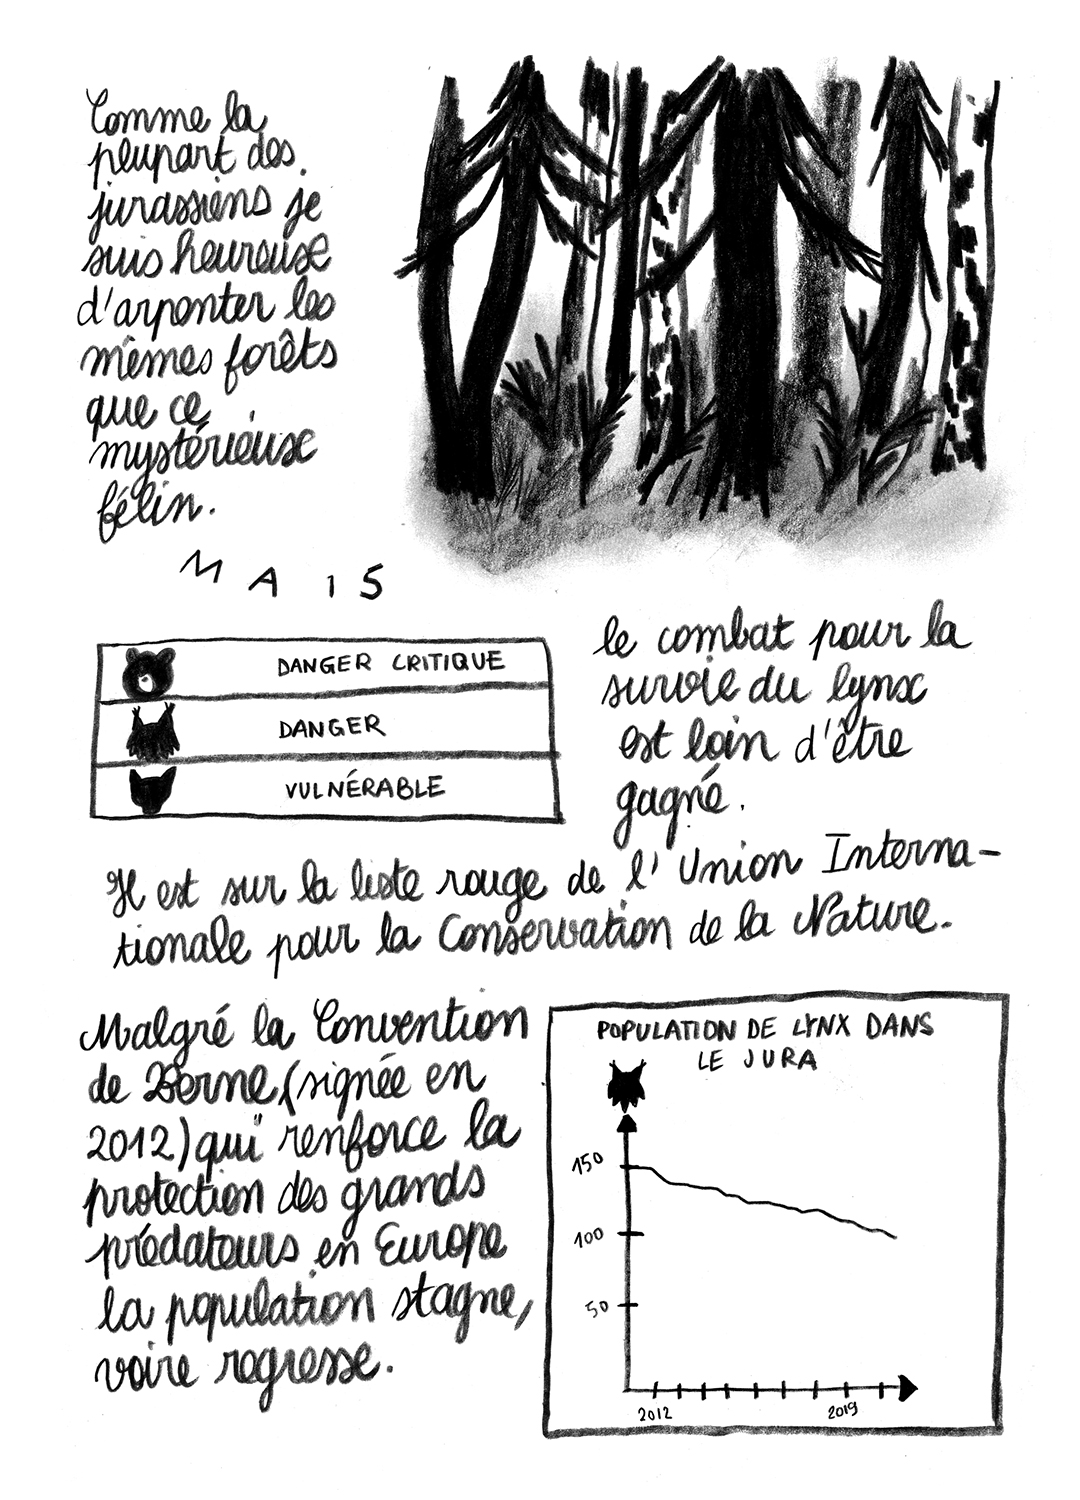 Comme la
plupart des
jurassiens je
suis heureuse
d'arponter les
mêmes forêts
que ce
mystérieuse
félin.
MAIS
DANGER CRITIQUE
DANGER
VULNÉRABLE
le combat pour la
survie du lynx
est loin d'être
gagné.
Il est sur la liste rouge de l'Union Interna-
tionale pour la Conservation de la Nature.
Malgré la Convention
de Berne (signée en
2012) qui renforce la
protection des grands
prédateurs en Europe
la population stagne,
voire regresse.
POPULATION DE LYNX DANS
LE JURA
150
100
50
2012 2019